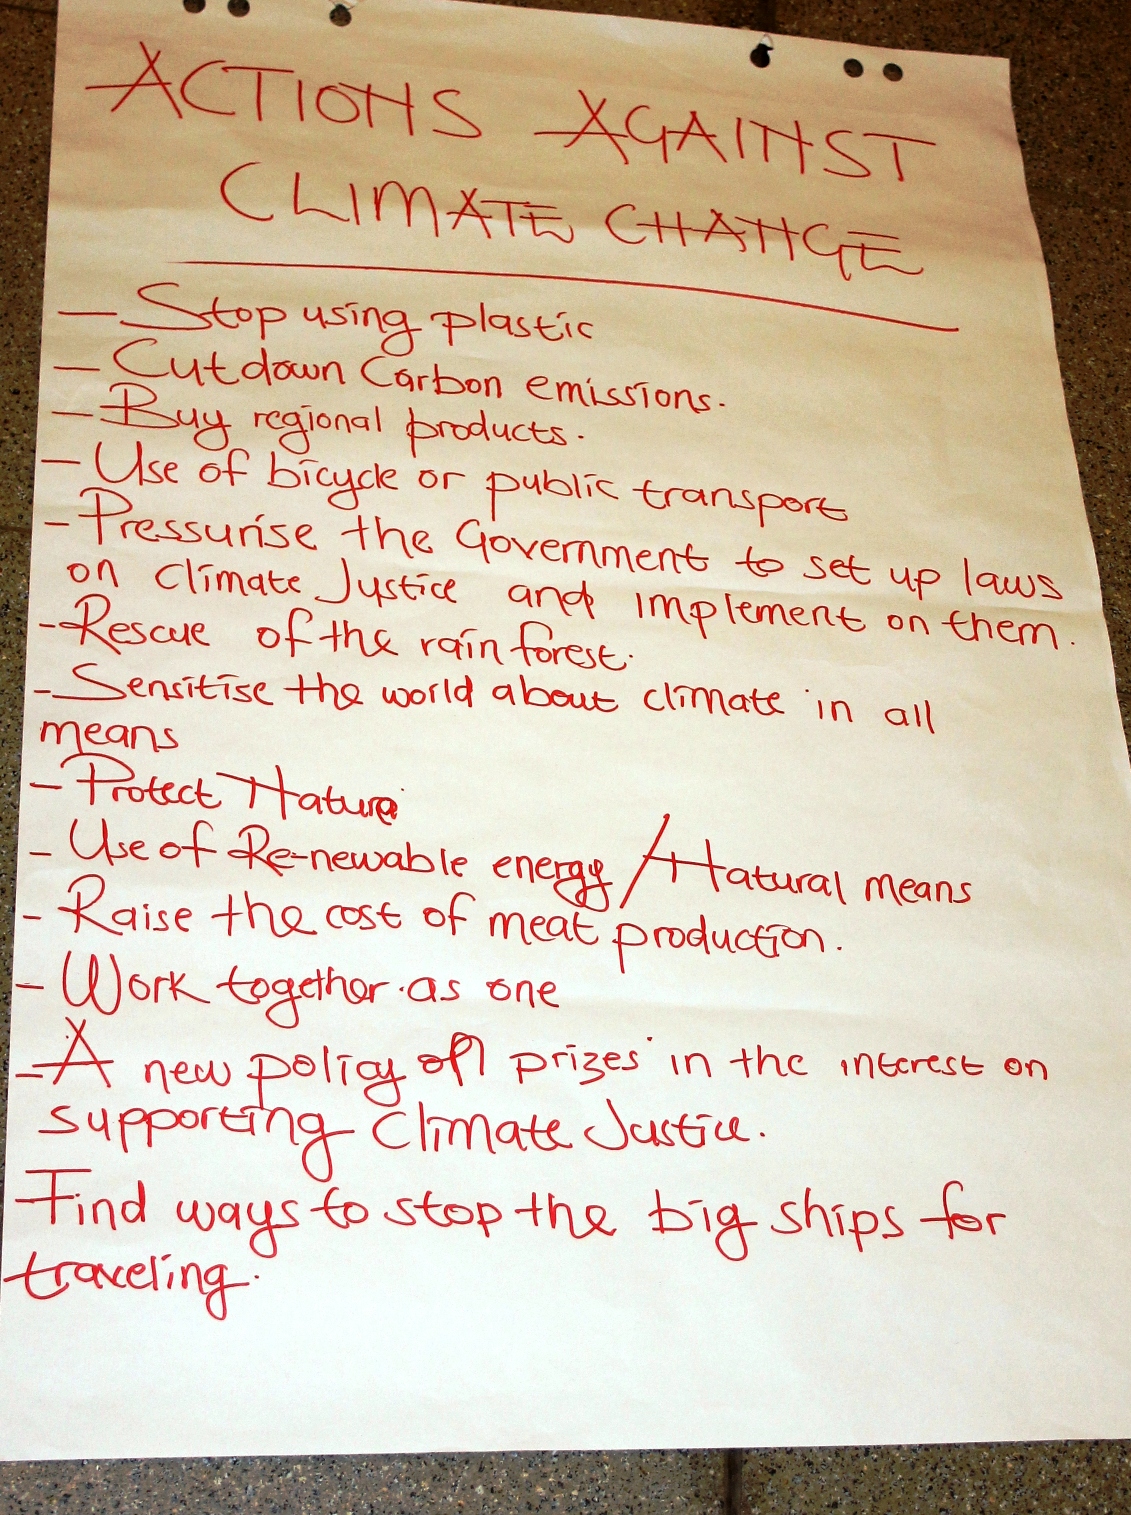 ACTIONS AGAINST
CLIMATE CHANGE
- Stop using plastic
- Cut down Carbon emissions.
- Buy regional products.
- Use of bicycle or public transport
- Pressurise the Government to set up laws
on Climate Justice and implement on them.
- Rescue of the rain forest.
- Sensitise the world about climate in all
means
- Protect Nature
- Use of Re-newable energy / Natural means
- Raise the cost of meat production.
- Work together as one
- A new policy on prizes in the interest on
supporting Climate Justice.
Find ways to stop the big ships for
traveling.